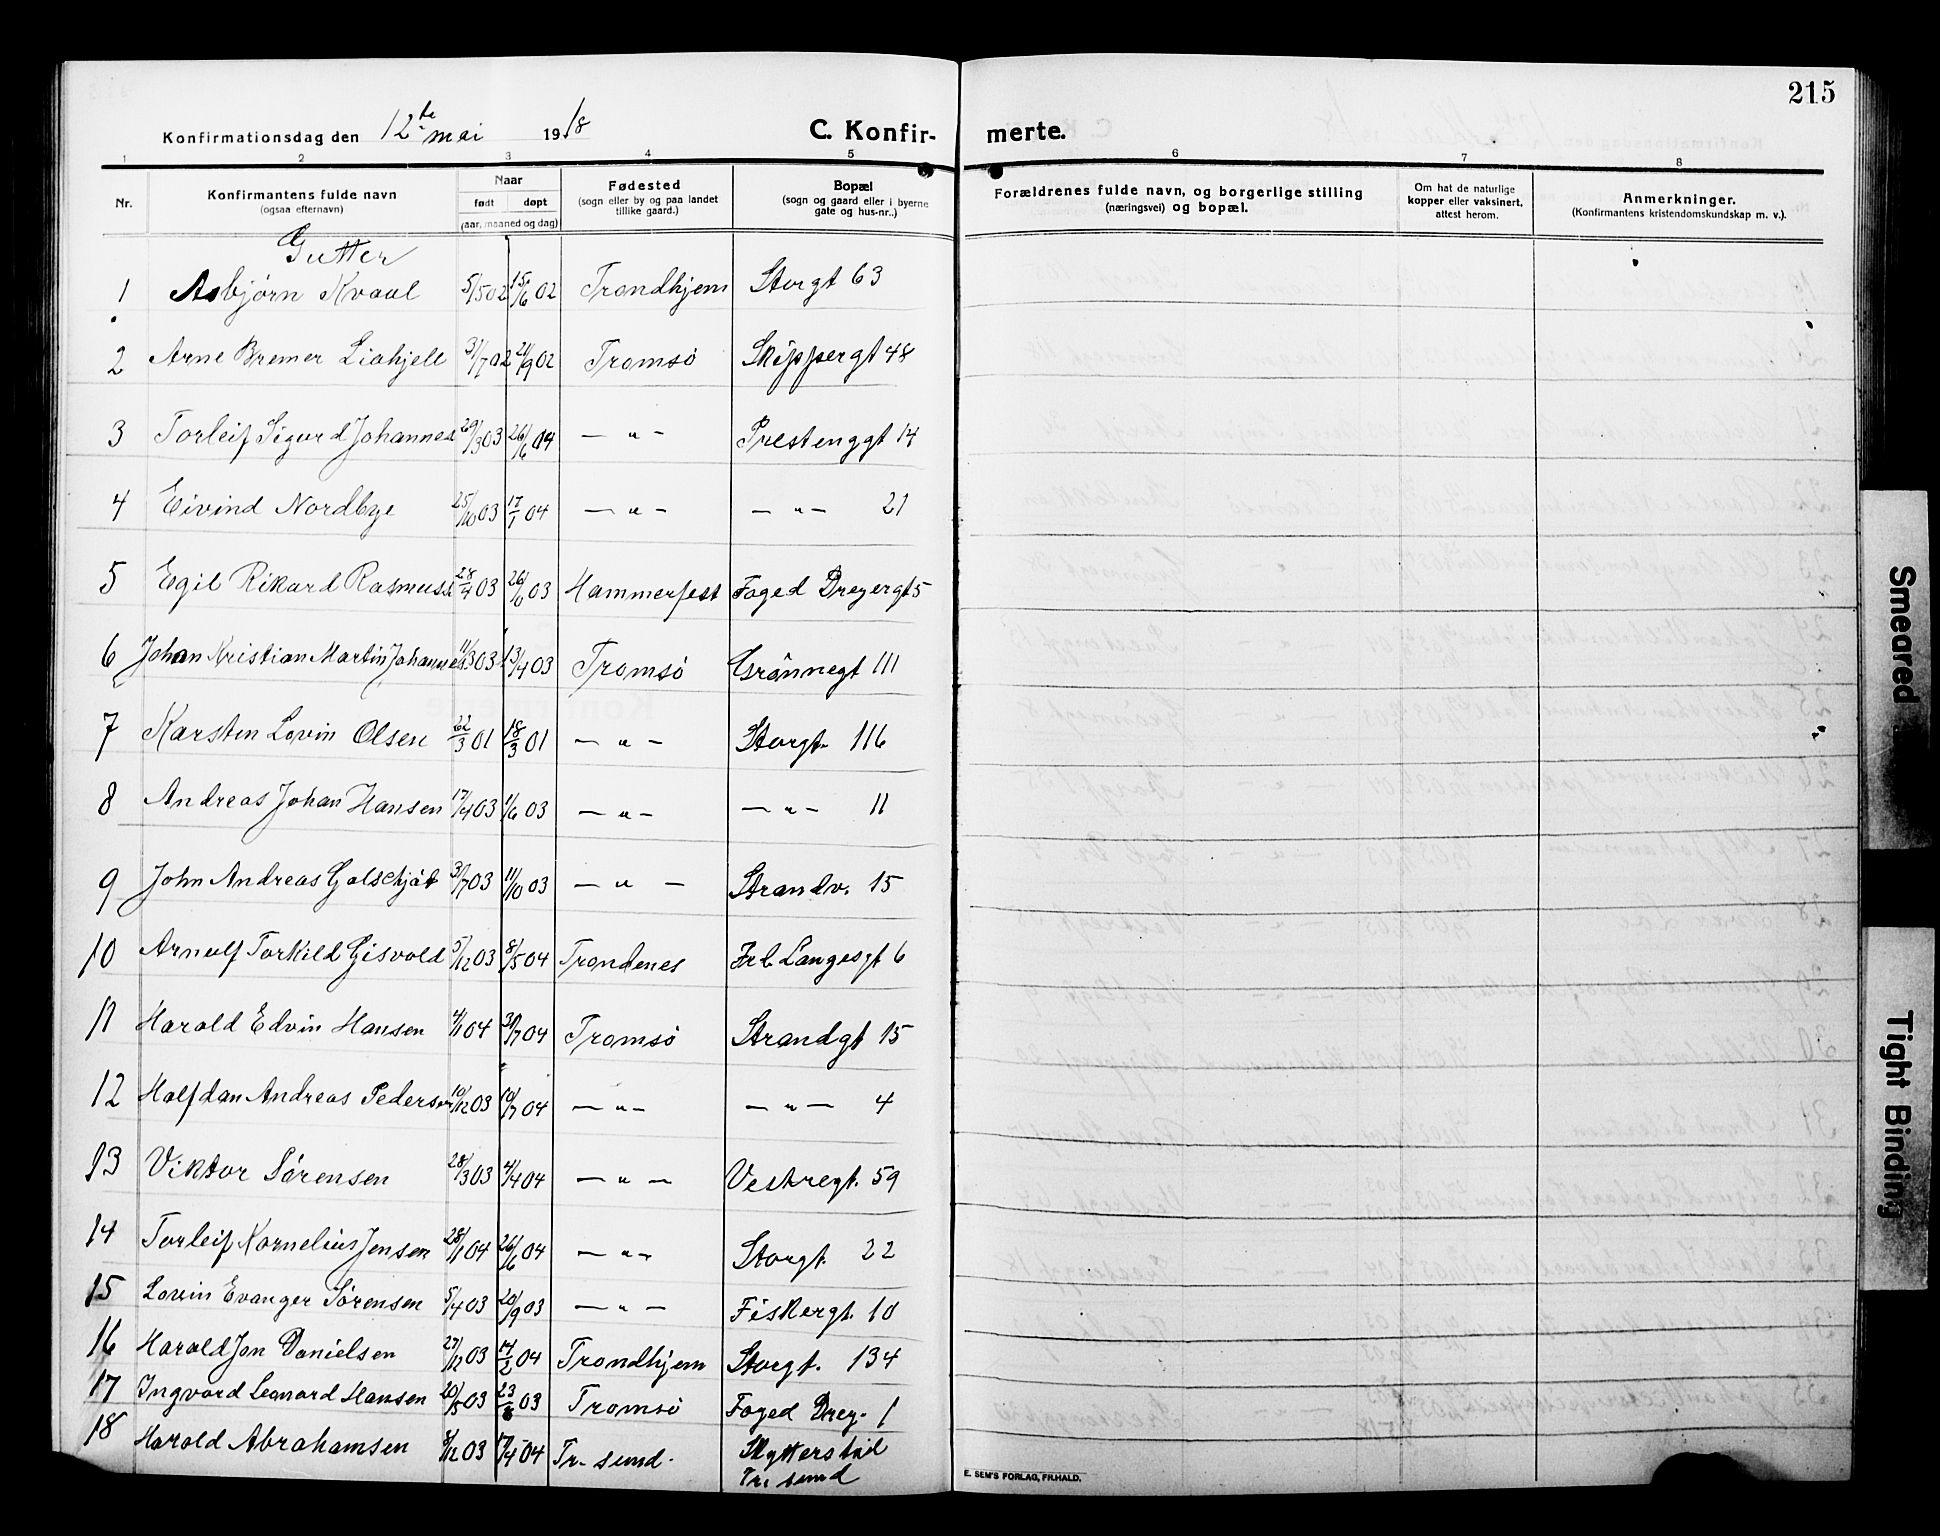 215
Konfirmationsdag den 12te mai 1918
C. Konfirmerte.
1 2 3 4 5 6 7 8
Nr. Konfirmantens fulde navn (ogsaa efternavn) Naar født døpt (aar, maaned og dag) Fødested (sogn eller by og paa landet tillike gaard.) Bopæl (sogn og gaard eller i byerne gate og hus-nr..) Forældrenes fulde navn, og borgerlige stilling (næringsvei) og bopæl. Om hat de naturlige kopper eller vaksinert, attest herom. Anmerkninger. (Konfirmantens kristendomskundskap m. v.).
Gutter
1 Asbjørn Kvaal 5/5 02 15/6 02 Trondhjem Storgt 63
2 Arne Bremer Liahjell 31/7 02 21/9 02 Tromsö Skippergt 48
3 Torleif Sigurd Johannes 29/3 03 26/6 04 — " — Prestenggt 14
4 Eivind Nordbye 25/10 03 17/1 04 — " — — " — 21
5 Egil Rikard Rasmuss 28/4 03 03 Hammerfest Foged Dreyergt 5
6 Johan Kristian Martin Johannes 11/3 03 13/4 03 Tromsö Grönnegt 111
7 Karsten Lovin Olsen 22/3 01 18/3 01 — " — Storgt. 116
8 Andreas Johan Hansen 17/4 03 1/6 03 — " — — " — 11
9 John Andreas 31/7 03 11/10 03 — " — Strandv. 15
10 Arnulf Torkild Gisvold 5/12 03 8/5 04 Trondenes Fr. Langesgt 6
11 Harald Edvin Hansen 4/1 04 31/7 04 Tromsö Strandgt 15
12 Halfdan Andreas Pedersen 10/12 03 10/7 04 — " — — " — 4
13 Viktor Sørensen 28/3 03 4/4 04 — " — Vestregt. 59
14 Torleif Kornelius Jensen 28/1 04 26/6 04 — " — Storgt. 22
15 Lovin Evanger Sørensen 5/4 03 20/9 03 — " — Fiskergt. 10
16 Harald Jon Danielsen 27/12 03 14/2 04 Trondhjem Storgt. 134
17 Ingvard Leonard Hansen 20/5 03 23/8 03 Tromsö Foged Drey. 1
18 Harold Abrahamsen 8/12 03 17/4 04 Tr. sund. Skytterstad
Tr. sund
E. SEM'S FORLAG, FR.HALD.
Smeared
Tight Binding